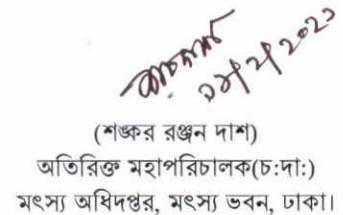 (শঙ্কর রঞ্জন দাশ)
অতিরিক্ত মহাপরিচালক(চ:দা:)
মৎস্য অধিদপ্তর, মৎস্য ভবন, ঢাকা।